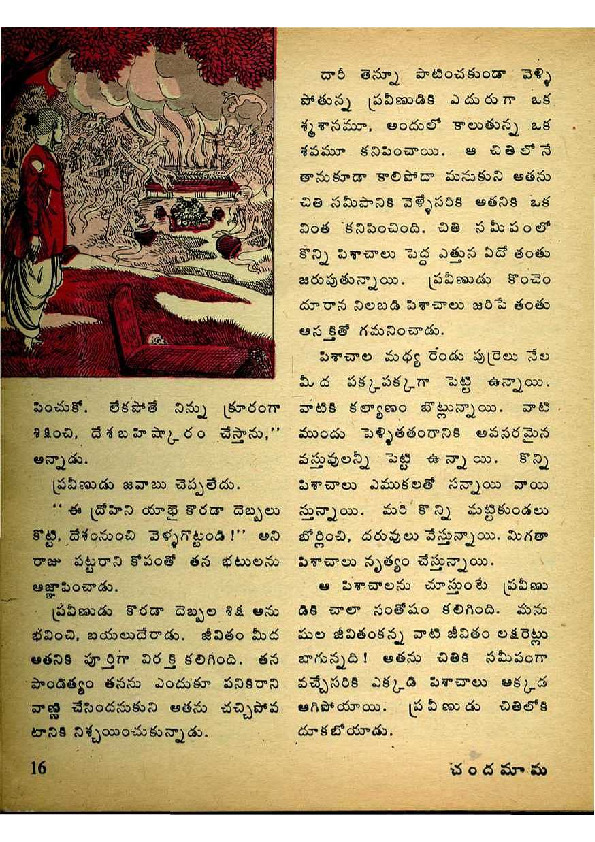 పించుకో. లేకపోతే నిన్ను క్రూరంగా
శిక్షించి, దేశబహిష్కారం చేస్తాను,''
అన్నాడు.
ప్రవీణుడు జవాబు చెప్పలేదు.
“ ఈ ద్రోహిని యాభై కొరడా దెబ్బలు
కొట్టి, దేశంనుంచి వెళ్ళగొట్టండి!'' అని
రాజు పట్టరాని కోపంతో తన భటులను
ఆజ్ఞాపించాడు.
ప్రవీణుడు కొరడా దెబ్బల శిక్ష అను
భవించి, బయలుదేరాడు. జీవితం మీద
అతనికి పూర్తిగా విరక్తి కలిగింది. తన
పాండిత్యం తనను ఎందుకూ పనికిరాని
వాణ్ణి చేసిందనుకుని అతను చచ్చిపోవ
టానికి నిశ్చయించుకున్నాడు.
దారీ తెన్నూ పాటించకుండా వెళ్ళి
పోతున్న ప్రవీణుడికి ఎదురుగా ఒక
శ్మశానమూ, అందులో కాలుతున్న ఒక
శవమూ కనిపించాయి. ఆ చితిలోనే
తానుకూడా కాలిపోదా మనుకుని అతను
చితి సమీపానికి వెళ్ళేసరికి అతనికి ఒక
వింత కనిపించింది. చితి సమీపంలో
కొన్ని పిశాచాలు పెద్ద ఎత్తున ఏదో తంతు
జరుపుతున్నాయి. ప్రవీణుడు కొంచెం
దూరాన నిలబడి పిశాచాలు జరిపే తంతు
ఆసక్తితో గమనించాడు.
పిశాచాల మధ్య రెండు పుర్రెలు నేల
మీద పక్కపక్కగా పెట్టి ఉన్నాయి.
వాటికి కల్యాణం బొట్లున్నాయి. వాటి
ముందు పెళ్ళితతంరానికి అవసరమైన
వస్తువులన్నీ పెట్టి ఉన్నాయి. కొన్ని
పిశాచాలు ఎముకలతో సన్నాయి వాయి
స్తున్నాయి. మరి కొన్ని మట్టికుండలు
బోర్లించి, దరువులు వేస్తున్నాయి. మిగతా
పిశాచాలు నృత్యం చేస్తున్నాయి.
ఆ పిశాచాలను చూస్తుంటే ప్రవీణు
డికి చాలా సంతోషం కలిగింది. మను
షుల జీవితంకన్న వాటి జీవితం లక్షరెట్లు
బాగున్నది! అతను చితికి సమీపంగా
వచ్చేసరికి ఎక్కడి పిశాచాలు అక్కడ
ఆగిపోయాయి. ప్రవీణుడు చితిలోకి
దూకబోయాడు.
16
చందమామ